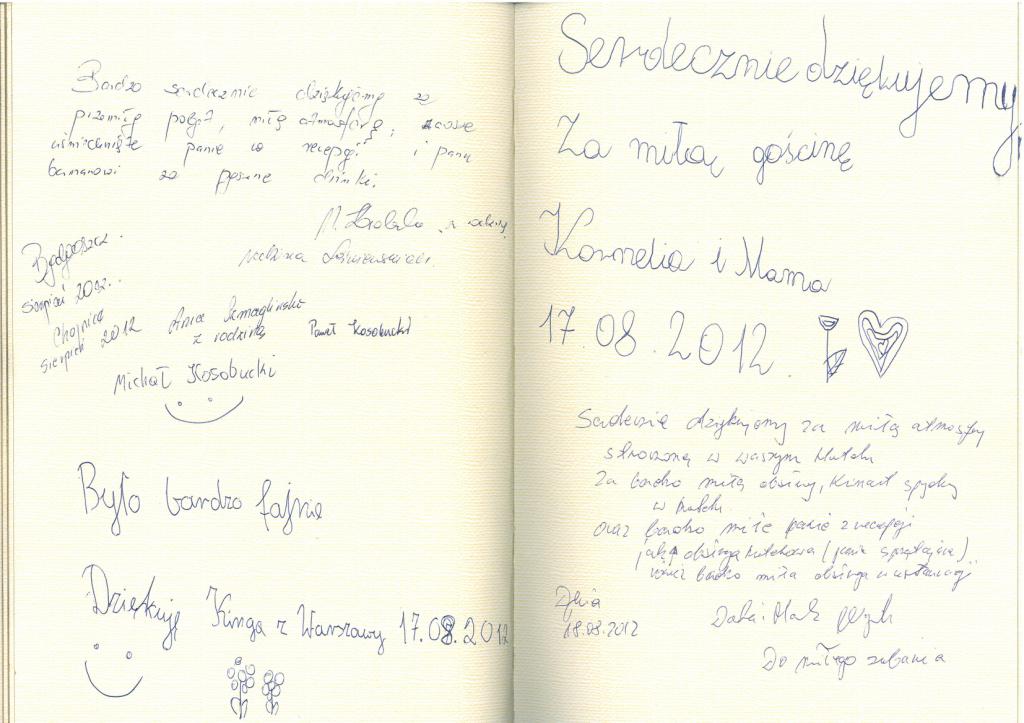 Bardzo serdecznie dziękujemy za
przemiły pobyt, miłą atmosferę, zawsze
uśmiechnięte panie w recepcji i panu
barmanowi za pyszne drinki.
z córką
Bydgoszcz
sierpień 2012.
Chojnice
sierpień 2012
z rodziną
Paweł Kosobucki
Michał Kosobucki
Było bardzo fajnie
Dziękuję Kinga z Warszawy 17.08.2012
Serdecznie dziękujemy
Za miłą gościnę
Kornelia i Mama
17.08.2012.
Serdecznie dziękujemy za miłą atmosferę
stworzoną w waszym Hotelu
Za bardzo miłą obsługę, spędzony
w hotelu
oraz bardzo miłe panie z recepcji
obsługa hotelowa (panie sprzątające)
bardzo miła obsługa w restauracji
Dnia
18.08.2012
Do miłego zobaczenia